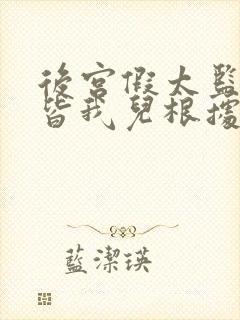 後宮假太監
皆我兒根據
藍潔瑛